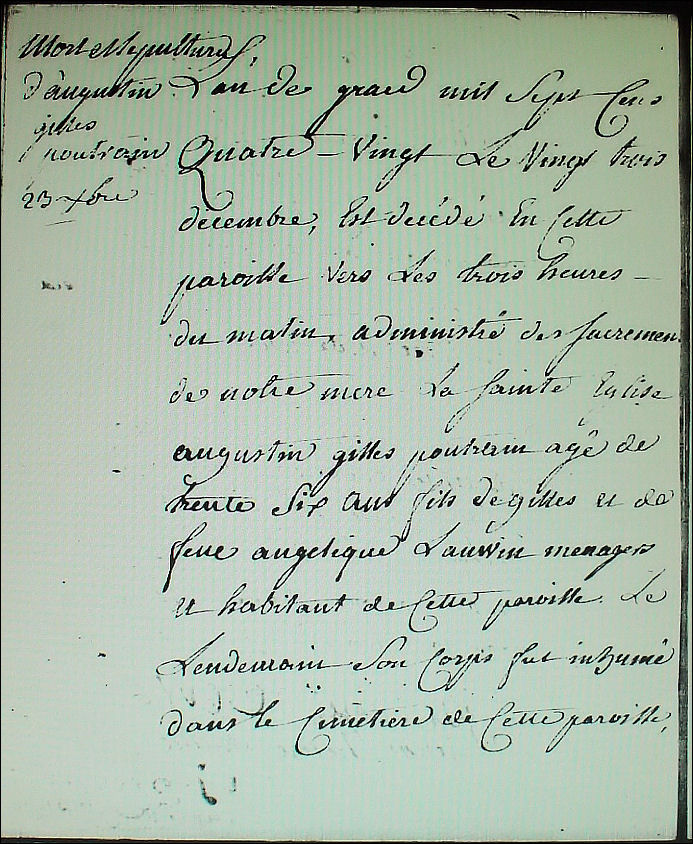 Mort et sepulture
d'augustin
gilles
poutrain
23 Xbre
L'an de grace mil sept Cens
Quatre-Vingt Le Vingt trois
decembre, Est decédé En Cette
paroisse vers Les trois heures
du matin, administré des sacremens
de notre mere La sainte Eglise
augustin gilles poutrain agé de
trente Six ans fils de gilles et de
feue angelique Lauwin menagers
et habitant de Cette paroisse. Le
Lendemain Son Corps fut inhumé
dans le Cimetiere de Cette paroisse,